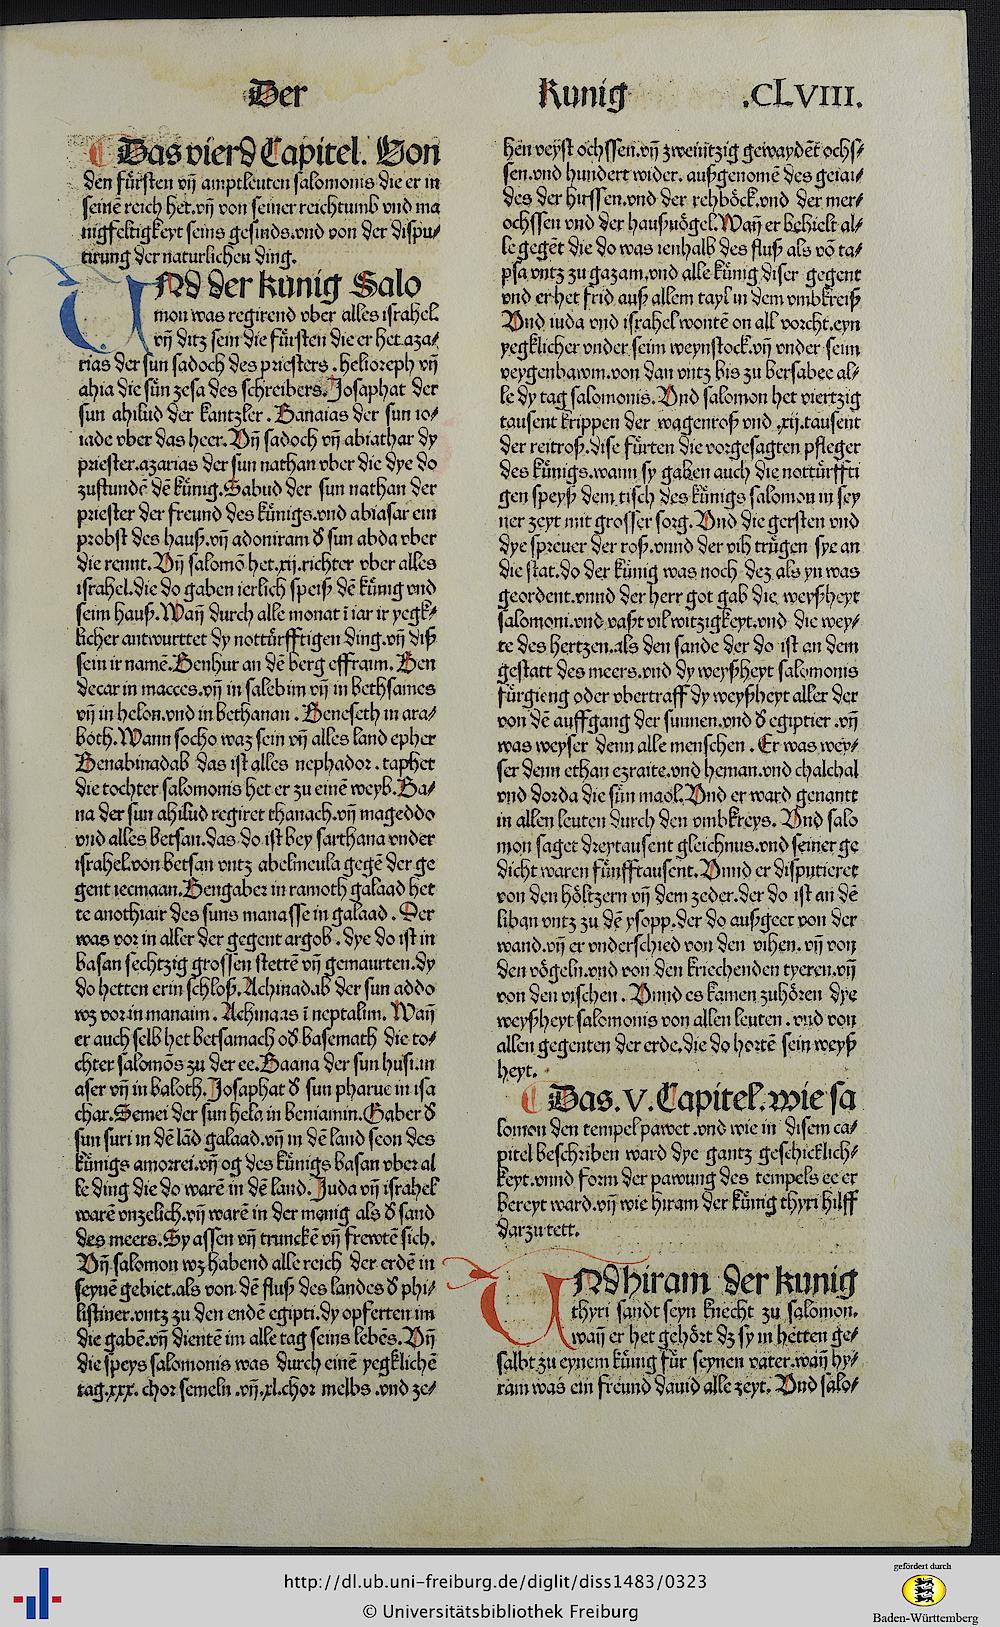 Der Kunig .CLVIII.
Das vierd Capitel. Von
den fürsten vñ amptleuten salomonis die er in
seinē reich het. vñ von seiner reichtumb vnd ma
nigfeltigkeyt seins gesinds. vnd von der dispu⸗
tirung der naturlichen ding.
UNd der kunig Salo
mon was regirend vber alles israhel.
vñ ditz sein die fürsten die er het. aza⸗
rias der sun sadoch des priesters . helioreph vñ
ahia die sün zesa des schreibers. Josaphat der
sun ahilud der kantzler . Banaias der sun io⸗
iade vber das heer. Vñ sadoch vñ abiathar dy
priester. azarias der sun nathan vber die dye do
zustundē dē künig. Sabud der sun nathan der
priester der freund des künigs. vnd abiasar ein
probst des hauß. vñ adoniram ď sun abda vber
die rennt. Vñ salomō het .xij. richter vber alles
israhel. die do gaben ierlich speiß dē künig vnd
seim hauß. Wañ durch alle monat ī iar ir yegk⸗
licher antwurttet dy nottürfftigen ding. vñ diß
sein ir namē. Benhur an dē berg effraim. Ben
decar in macces. vñ in salebim vñ in bethsames
vñ in helon. vnd in bethanan . Beneseth in ara⸗
both. Wann socho waz sein vñ alles land epher
Benabinadab das ist alles nephador . taphet
die tochter salomonis het er zu einē weyb. Ba⸗
na der sun ahilud regiret thanach. vñ mageddo
vnd alles betsan. das do ist bey sarthana vnder
israhel. von betsan vntz abelmeula gegē der ge
gent iecmaan. Bengaber in ramoth galaad het
te anothiair des suns manasse in galaad . Der
was vor in aller der gegent argob . dye do ist in
basan sechtzig grossen stettē vñ gemaurten. dy
do hetten erin schloß. Achinadab der sun addo
wz vor in manaim . Achimaas ī neptalim. Wañ
er auch selb het betsamach oď basemath die to⸗
chter salomōs zu der ee. Baana der sun husi. in
aser vñ in baloth. Josaphat ď sun pharue in isa
char. Semei der sun hela in beniamin. Gaber ď
sun suri in dē lād galaad. vñ in dē land seon des
künigs amorrei. vñ og des künigs basan vber al
le ding die do warē in dē land. Juda vñ israhel
warē vnzelich. vñ warē in der menig als ď sand
des meers. Sy assen vñ trunckē vñ frewtē sich.
Vñ salomon wz habend alle reich der erdē in
seynē gebiet. als von dē fluß des landes ď phi⸗
listiner. vntz zu den endē egipti. dy opferten im
die gabē. vñ dientē im alle tag seins lebēs. Vñ
die speys salomonis was durch einē yegklichē
tag .xxx. chor semeln .vñ .xl. chor melbs . vnd ze⸗
hen veyst ochssen. vñ zweintzig gewaydēt ochs⸗
sen. vnd hundert wider. außgenomē des geiai⸗
des der hirssen. vnd der rehböck. vnd der mer⸗
ochssen vnd der haußuögel. Wañ er behielt al⸗
le gegēt die do was ienhalb des fluß als vō ta⸗
psa vntz zu gazam. vnd alle künig diser gegent
vnd er het frid auß allem tayl in dem vmbkreiß
Vnd iuda vnd israhel wontē on all vorcht. eyn
yegklicher vnder seim weynstock. vñ vnder seim
veygenbawm. von dan vntz bis zu bersabee al⸗
le dy tag salomonis. Vnd salomon het viertzig
tausent krippen der wagenroß vnd .xij. tausent
der reitroß. dise fürten die vorgesagten pfleger
des künigs. wann sy gaben auch die nottürffti
gen speyß dem tisch des künigs salomon in sey
ner zeyt mit grosser sorg. Vnd die gersten vnd
dye spreuer der roß. vnnd der vih trügen sye an
die stat. do der künig was noch dez als yn was
geordent. vnnd der herr got gab die weyßheyt
salomoni. vnd vaßt vil witzigkeyt. vnd die wey⸗
te des hertzen. als den sande der do ist an dem
gestatt des meers. vnd dy weyßheyt salomonis
fürgieng oder vbertraff dy weyßheyt aller der
von dē auffgang der sunnen. vnd ď egiptier . vñ
was weyser denn alle menschen . Er was wey⸗
ser denn ethan ezraite. vnd heman. vnd chalchal
vnd dorda die sün maol. Vnd er ward genantt
in allen leuten durch den vmbkreys. Vnd salo
mon saget dreytausent gleichnus. vnd seiner ge
dicht waren fünfftausent. Vnnd er disputieret
von den höltzern vñ dem zeder. der do ist an dē
liban vntz zu dē ysopp. der do außgeet von der
wand. vñ er vnderschied von den vihen. vñ von
den vögeln. vnd von den kriechenden tyeren. vñ
von den vischen . Vnnd es kamen zuhören dye
weyßheyt salomonis von allen leuten . vnd von
allen gegenten der erde. die do hortē sein weyß
heyt.
Das .V. Capitel. wie sa
lomon den tempel pawet .vnd wie in disem ca⸗
pitel beschriben ward dye gantz geschicklich⸗
keyt. vnnd form der pawung des tempels ee er
bereyt ward. vñ wie hiram der künig thyri hilff
darzu tett.
UNd hiram der kunig
thyri sandt seyn knecht zu salomon.
wañ er het gehört dz sy in hetten ge⸗
salbt zu eynem künig für seynen vater. wañ hy⸗
ram was ein freund dauid alle zeyt. Vnd salo⸗
http://dl.ub.uni-freiburg.de/diglit/diss1483/0323
© Universitätsbibliothek Freiburg
gefördert durch
Baden-Württemberg